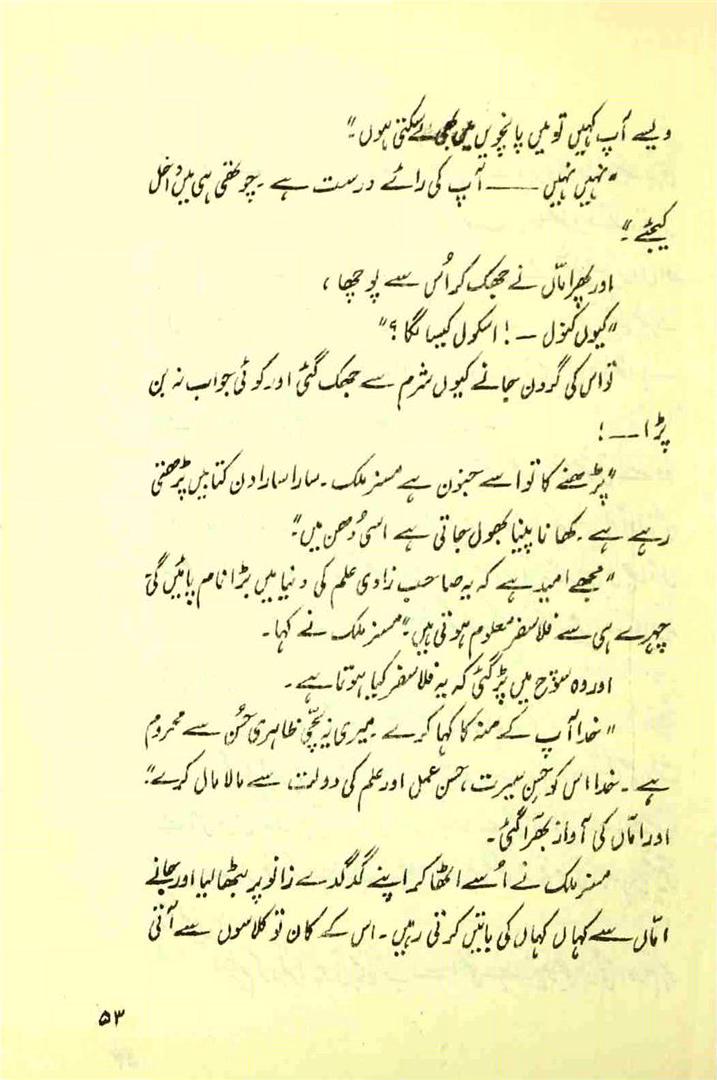 ویسے آپ کہیں تو میں پانچویں میں بھی لے سکتی ہوں۔"
"نہیں نہیں —— آپ کی رائے درست ہے۔ چوتھی ہی میں داخل
کیجئے۔"
اور پھر اماّں نے جھک کر اُس سے پوچھا،
"کیوں کنول —! اسکول کیسا لگا؟"
تو اس کی گردن جانے کیوں شرم سے جھک گئی اور کوئی جواب نہ بن
پڑا —!
"پڑھنے کا تو اسے جنون ہے مسز ملک۔ سارا سارا دن کتابیں پڑھتی
رہے ہے۔ کھانا پینا بھول جاتی ہے اسی دُھن میں"۔
"مجھے امید ہے کہ یہ صاحب زادی علم کی دنیا میں بڑا نام پائیں گی۔
چہرے ہی سے فلاسفر معلوم ہوتی ہیں" مسز ملک نے کہا۔
اور وہ سوچ میں پڑ گئی کہ یہ فلاسفر کیا ہوتا ہے۔
"خدا آپ کے منہ کا کہا کرے۔ میری یہ بچّی ظاہری حُسن سے محروم
ہے۔ خدا اس کو حسنِ سیرت، حسن عمل اور علم کی دولت سے مالا مال کرے"۔
اور اماّں کی آواز بھرّا گئی۔
مسز ملک نے اُسے اٹھا کر اپنے گدگدے زانو پر بٹھا لیا اور جانے
امّاں سے کہاں کہاں کی باتیں کرتی رہیں۔ اس کے کان تو کلاسوں سے آتی
۵۳